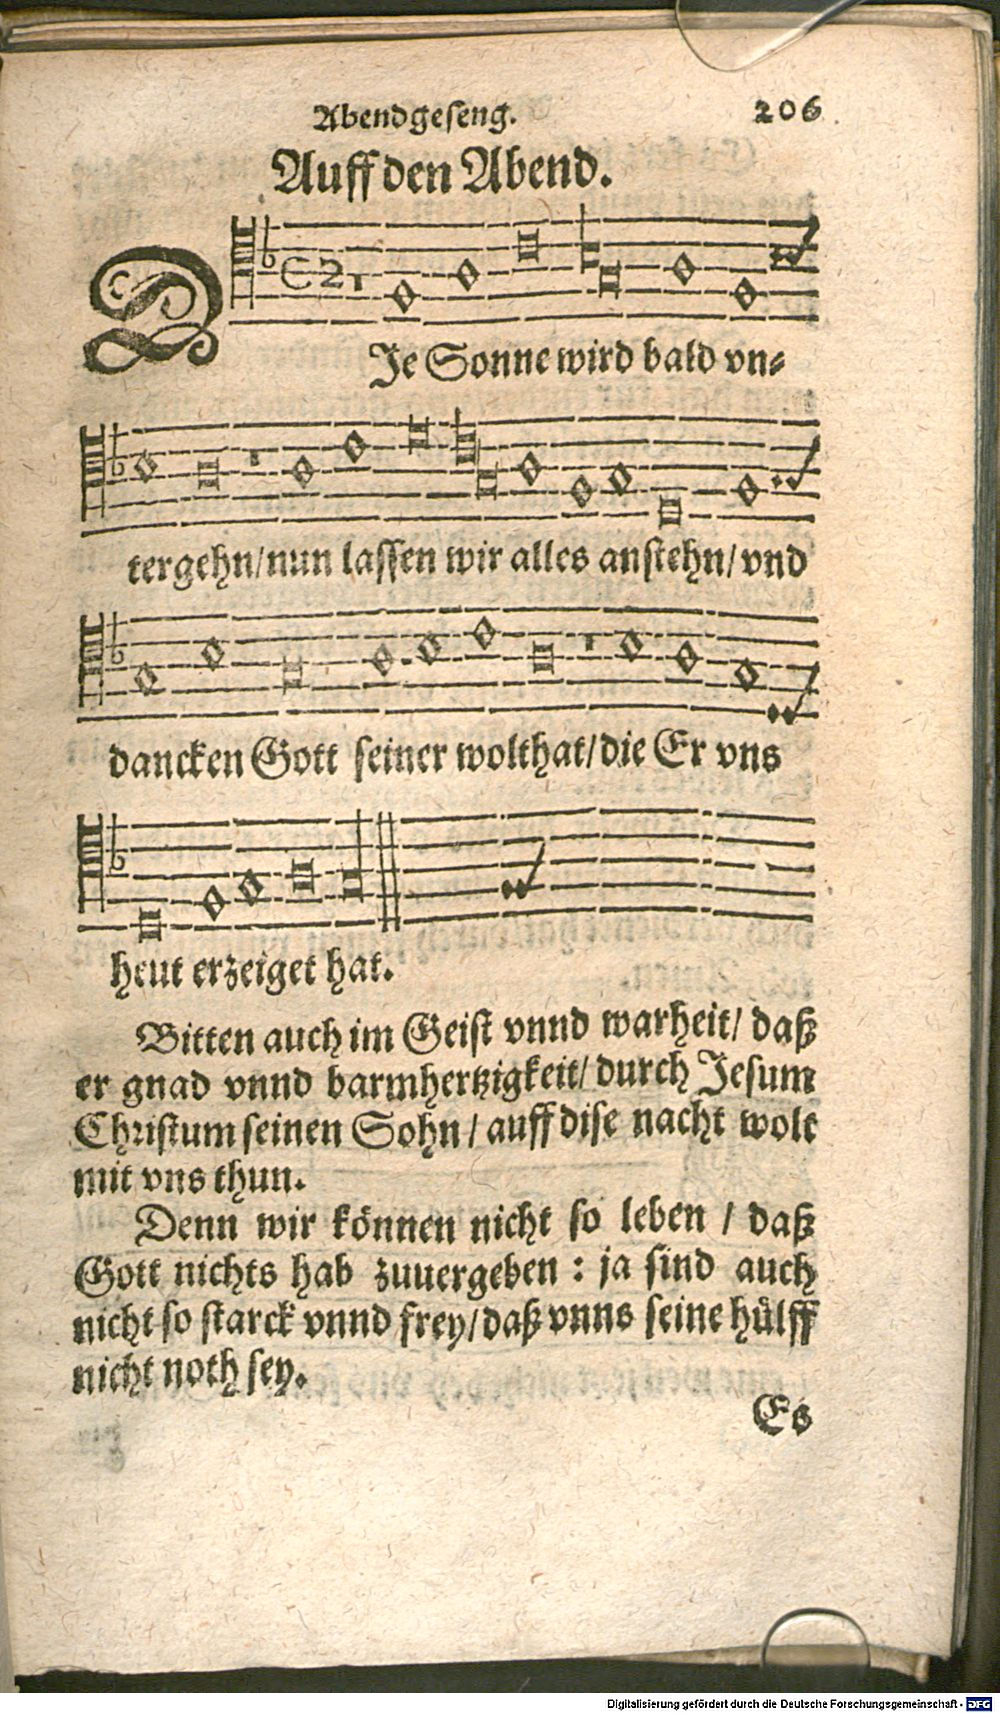 Abendgeseng. 206
Auff den Abend.
DJe Sonne wird bald vn⸗
tergehn/nun lassen wir alles anstehn/vnd
dancken Gott seiner wolthat/die Er vns
heut erzeiget hat.
Bitten auch im Geist vnnd warheit/ daß
er gnad vnnd barmhertzigkeit/ durch Jesum
Christum seinen Sohn / auff dise nacht wolt
mit vns thun.
Denn wir können nicht so leben / daß
Gott nichts hab zuuergeben : ja sind auch
nicht so starck vnnd frey/daß vnns seine hülff
nicht noth sey.
Es
Digitalisierung gefördert durch die Deutsche Forschungsgemeinschaft - DFG